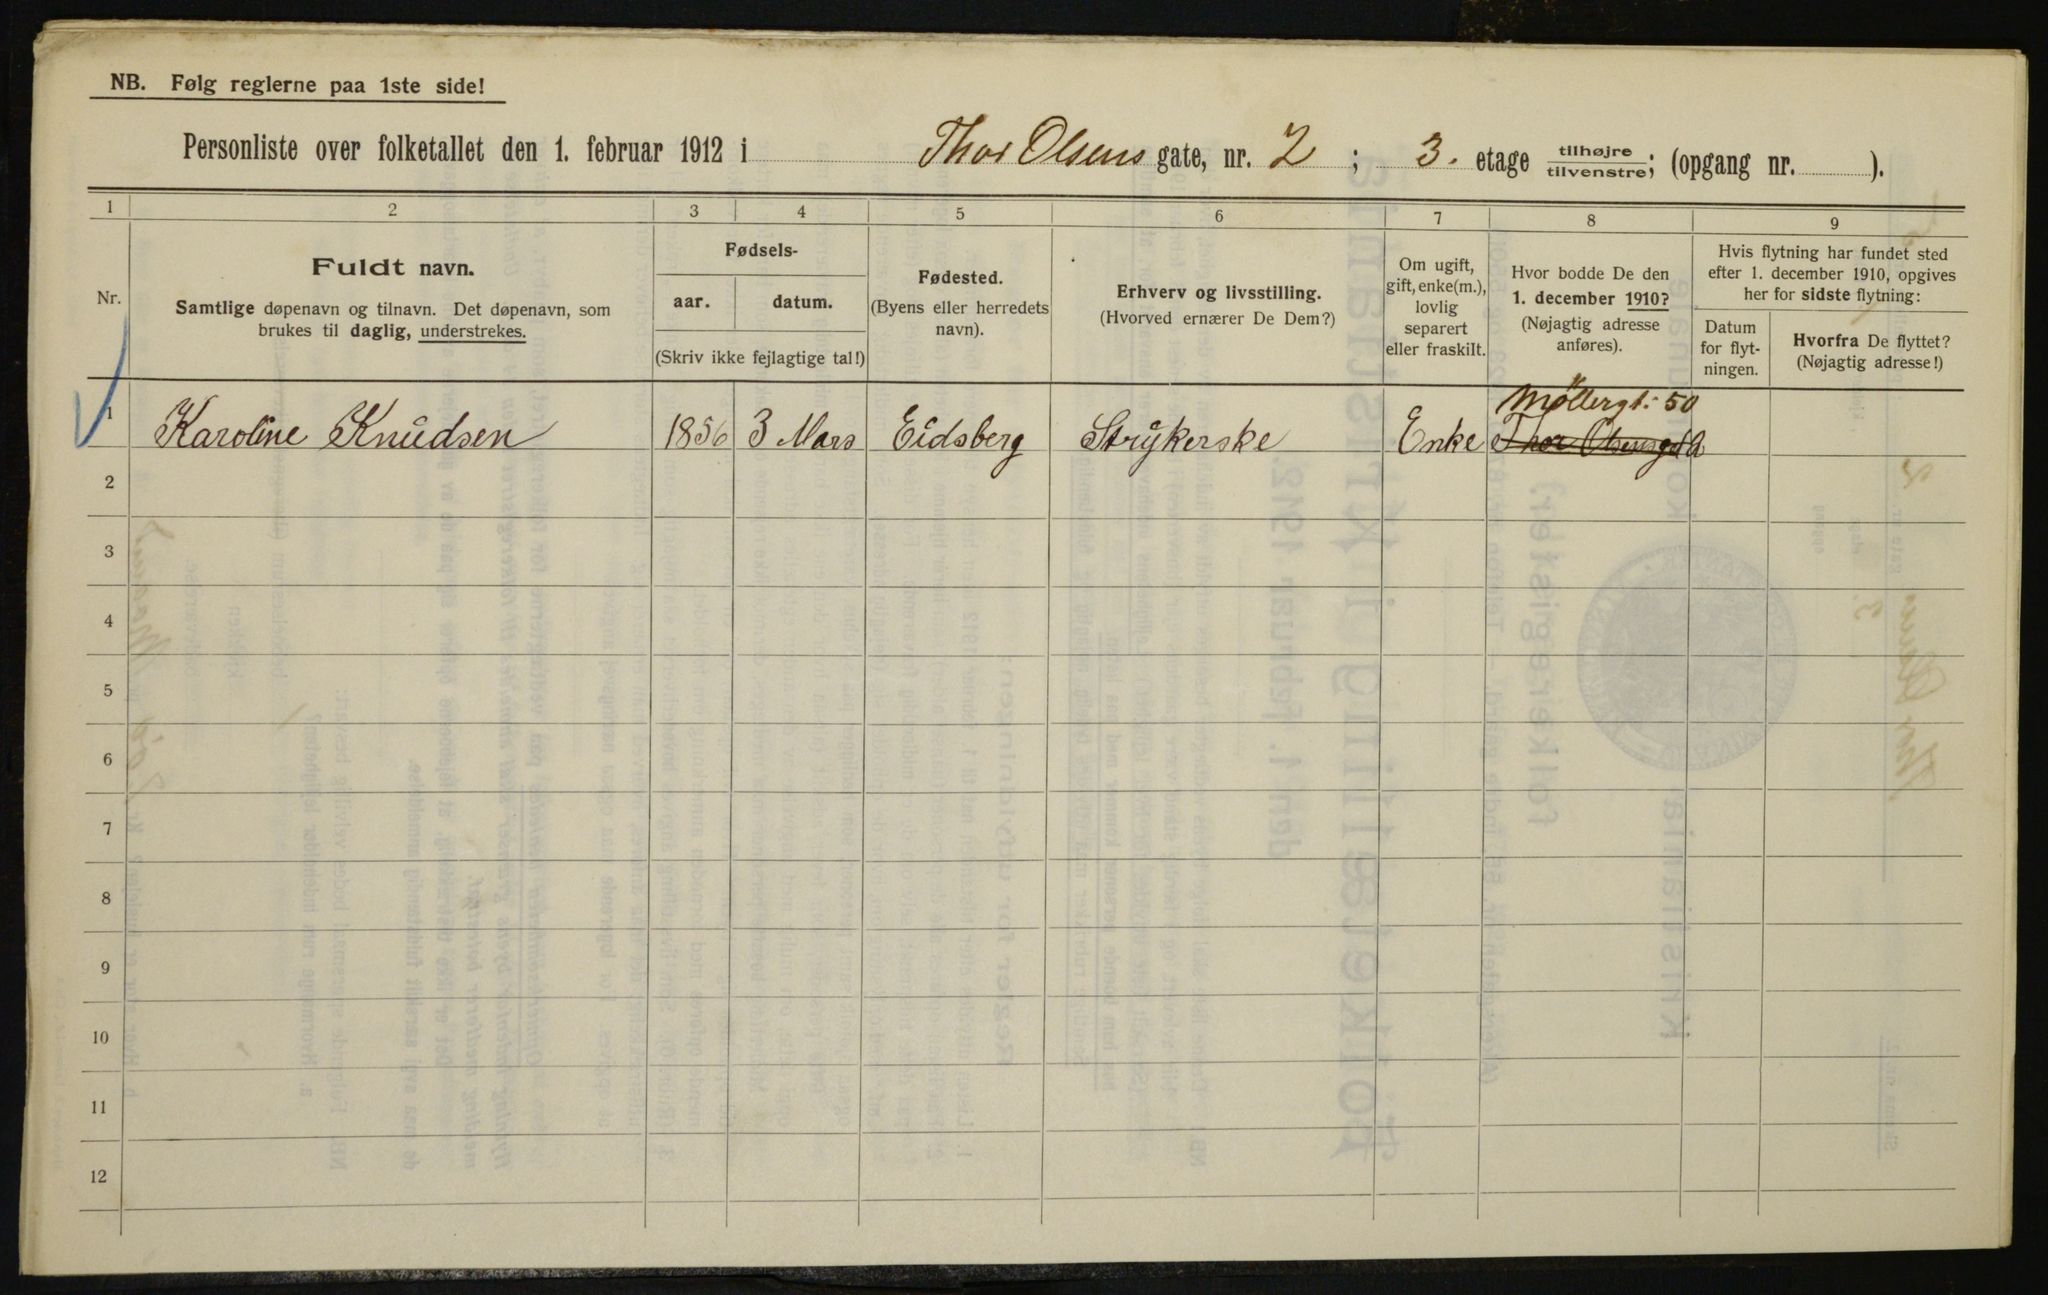 NB. Følg reglerne paa 1ste side!
Personliste over folketallet den 1. februar 1912 i Thor Olsens gate, nr. 2 ; 3. etage tilhøjre tilvenstre; (opgang nr. ).
1 2 3 4 5 6 7 8 9
Nr.
Fuldt navn.
Samtlige døpenavn og tilnavn. Det døpenavn, som
brukes til daglig, understrekes.
Fødsels-
aar. datum.
(Skriv ikke fejlagtige tal!)
Fødested.
(Byens eller herredets
navn).
Erhverv og livsstilling.
(Hvorved ernærer De Dem?)
Om ugift,
gift, enke(m.),
lovlig
separert
eller fraskilt.
Hvor bodde De den
1. december 1910?
(Nøjagtig adresse
anføres).
Hvis flytning har fundet sted
efter 1. december 1910, opgives
her for sidste flytning:
Datum
for flyt-
ningen.
Hvorfra De flyttet?
(Nøjagtig adresse!)
Møllergt. 50
1 Karoline Knudsen 1856 3 Mars Eidsberg Strykerske Enke Thor Olsensgd
2
3
4
5
6
7
8
9
10
11
12